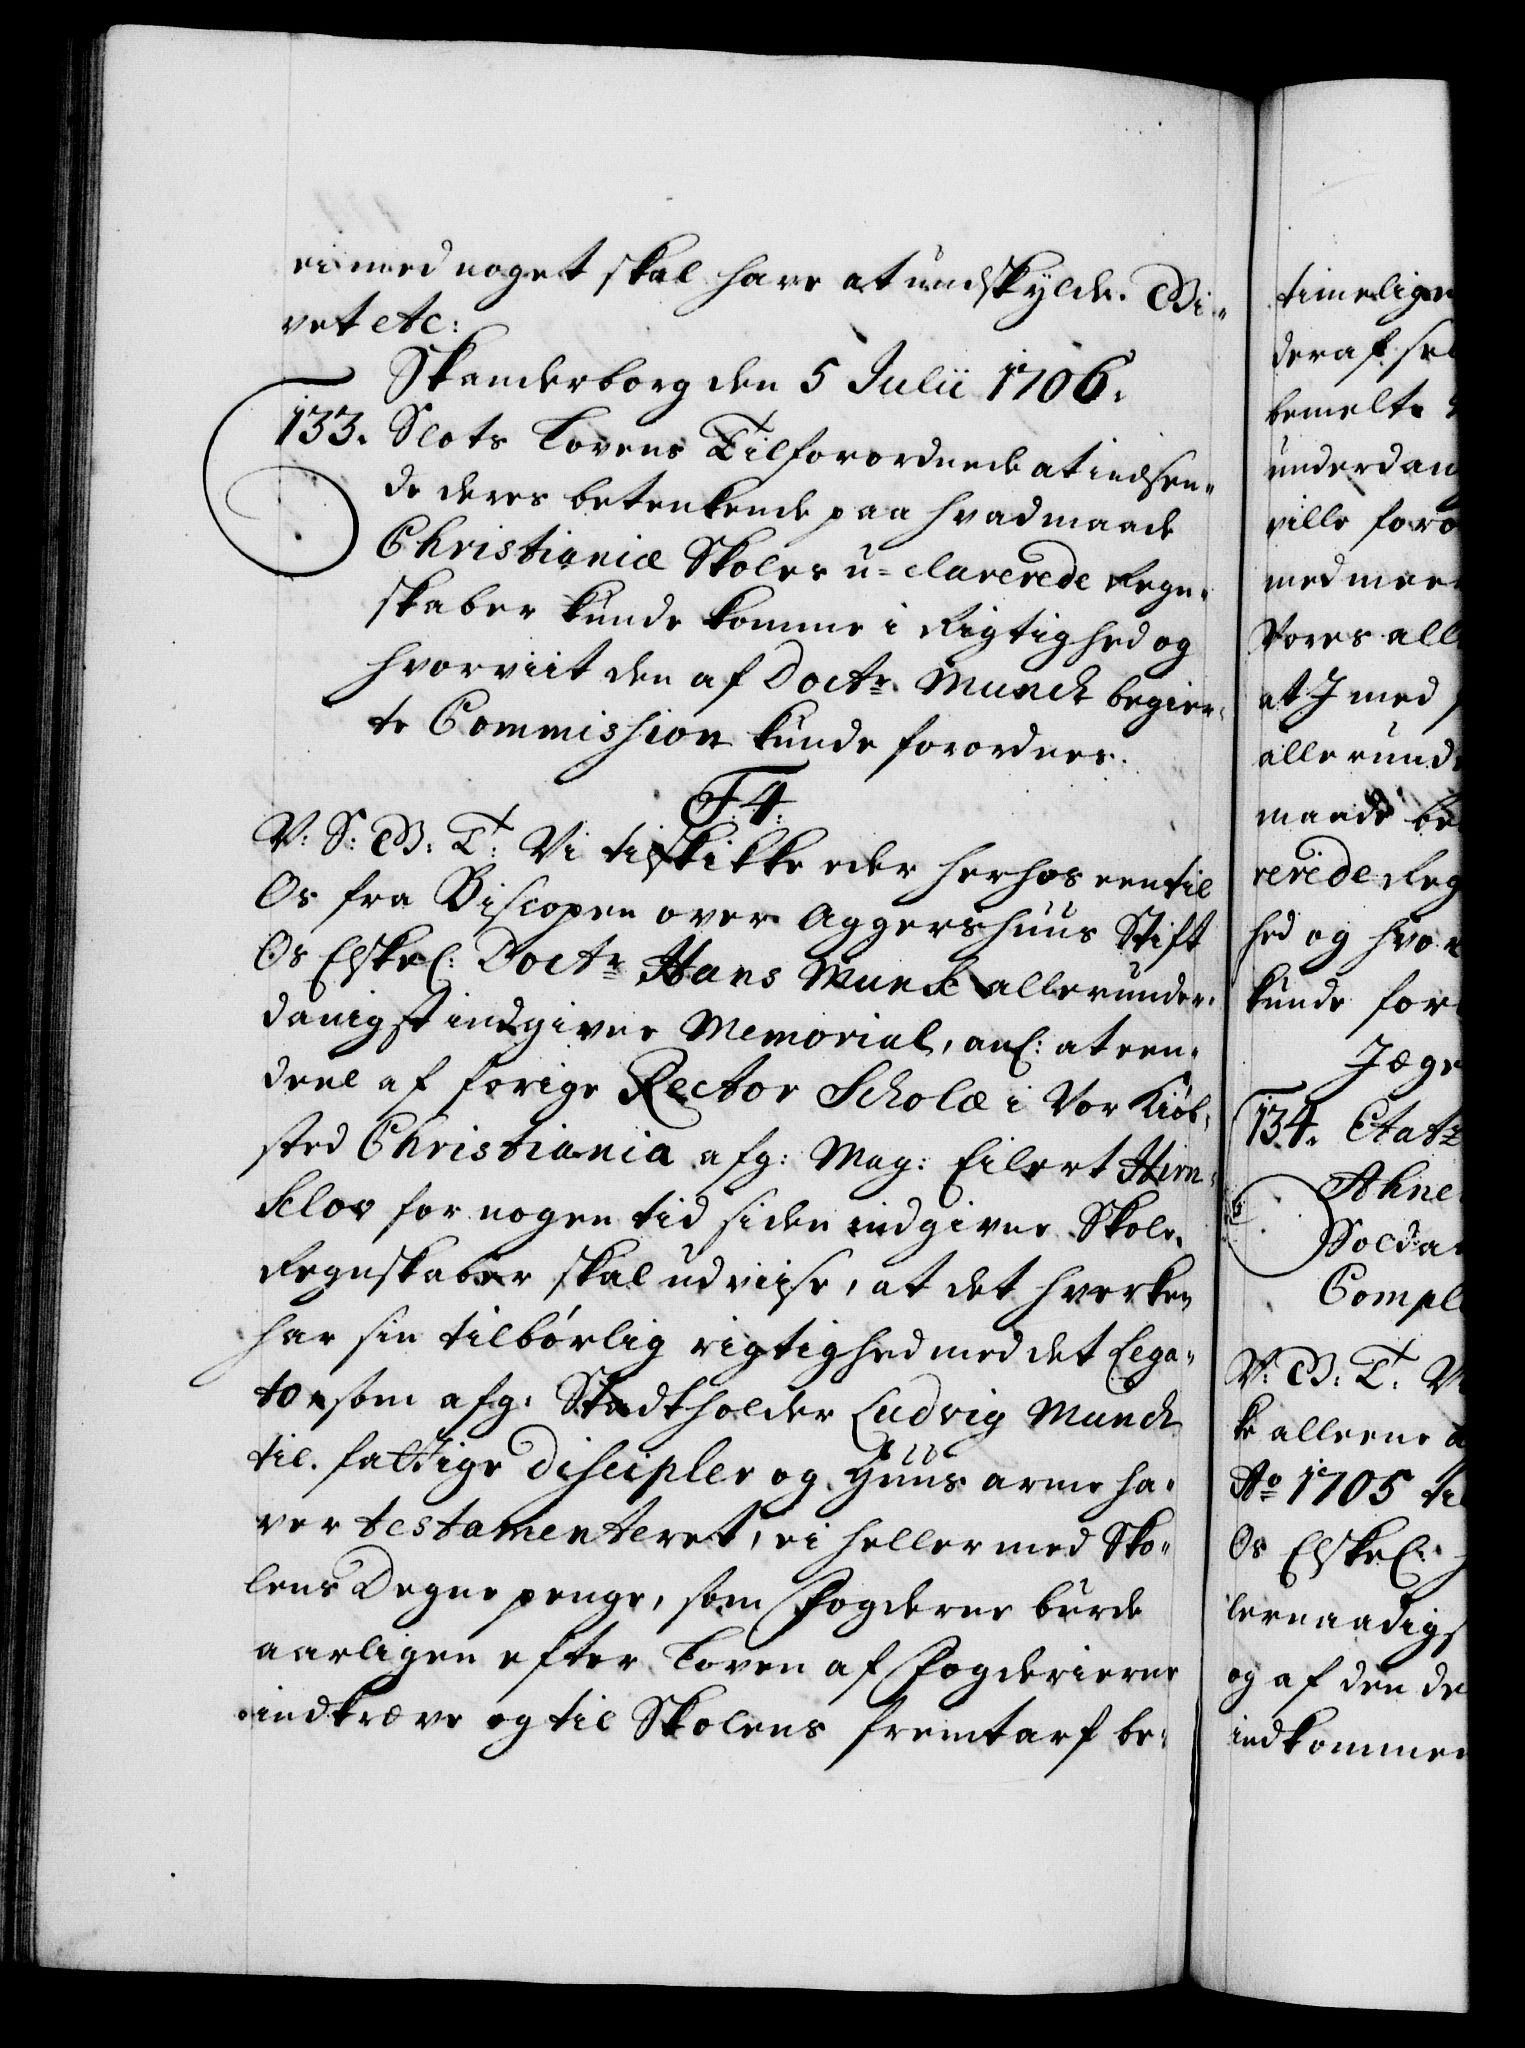 ei med noget skal have at undskylde. Gi-
vet etc:
Skanderborg den 5 Julii 1706.
133. Slots Lovens Tilforordnede at indsen-
de deres betenkende paa hvad maade
Christianiæ Skoles u-clarerede Regn-
skaber kunde komme i Rigtighed og
hvorviit den af Doctr. Munch begier-
te Commission kunde forordnes.
F. 4.
V: S: G: T: Vi tilskikke eder herhos een til
Os fra Biscopen over Aggershuus Stift
Os Elskel: Doctr Hans Munck allerunder-
danigst indgiven Memorial, anl: at een
deel af forige Rector Scholæ i Vor Kiøb-
sted Christiania afg: Mag: Eilert Hern-
sclov for nogen tid siden indgivne Skole
Regnskaber skal udviise, at det hverken
har sin tilbørlig rigtighed med det Lega-
to som afg: Stadtholder Ludvig Munch
til fattige Discipler og Huus arme ha-
ver testamenteret, ei heller med Sko-
lens Degne penge, som Fogderne burde
aarligen efter Loven af Fogderierne
indkræve og til Skolens fremtarf be-
timelige
deraf
bemelte
underdan
ville foro
med meer
Vores all
at I med
allerund
maade be
rerede Reg
hed og hvor
kunde for
Jæge
134. Etatz
Ahne
Soldat
Comple
V: G: T: V
ke alleene
Ao 1705 til
Os Elskel:
lernaadigs
og af den de
indkommen